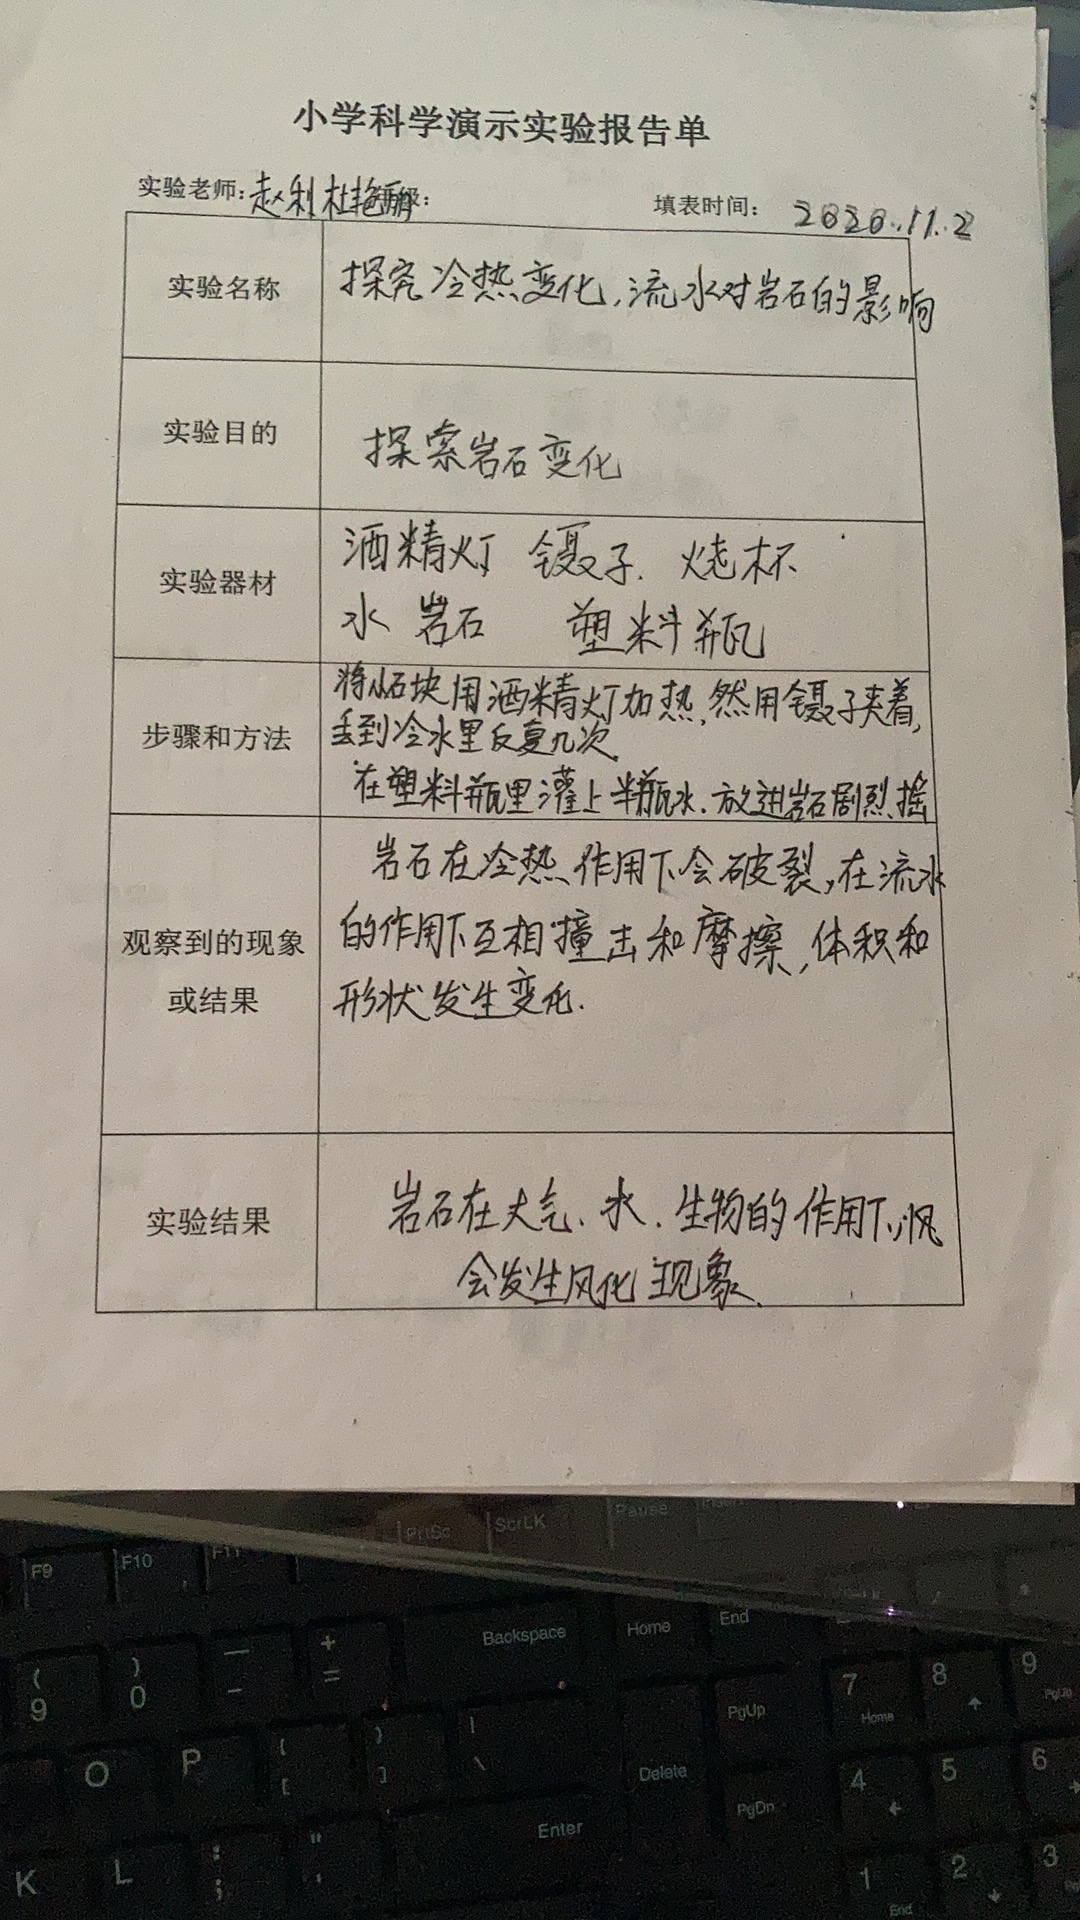 小学科学演示实验报告单
实验老师:赵利 杜艳丽 级:
填表时间: 2020.11.2
实验名称
探究冷热变化,流水对岩石的影响
实验目的
探索岩石变化
实验器材
酒精灯 镊子. 烧杯
水 岩石 塑料瓶
步骤和方法
将小石块用酒精灯加热,然用镊子夹着,
丢到冷水里反复几次.
在塑料瓶里灌上半瓶水.放进岩石剧烈摇
观察到的现象
或结果
岩石在冷热作用下会破裂,在流水
的作用下互相撞击和摩擦,体积和
形状发生变化.
实验结果
岩石在大气、水.生物的作用下,
会发生风化现象.
PrtSc
ScrLK
Pause
Insert
F9
F10
F11
Backspace
Home
End
( 9
) 0
— -
+ =
7 Home
8
9 PgUp
O
P
{ [
} ]
| \
Delete
PgUp
PgDn
4
5
6
K
L
: ;
" '
Enter
1 End
2
3